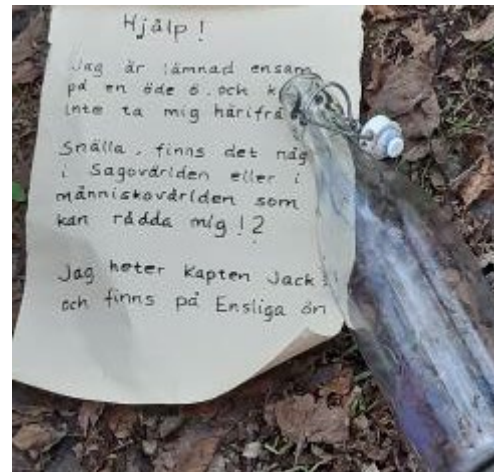 Hjälp!
Jag är lämnad ensam
på en öde ö. och k
inte ta mig härifrå
Snälla, finns det någ
i Sagovärlden eller i
människovärlden som
kan rädda mig!?
Jag heter Kapten Jack
och finns på Ensliga ön